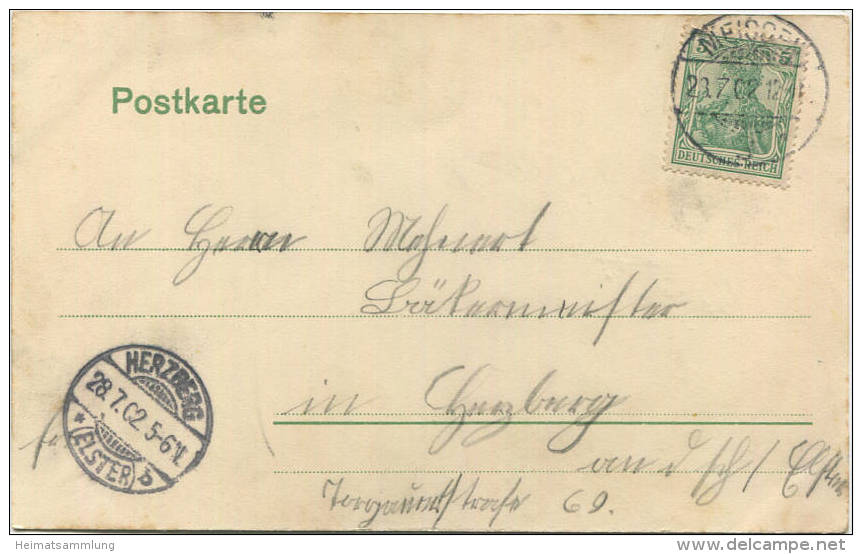 MEISSEN
28.7.02 12
DEUTSCHES REICH
Postkarte
An Herrn Mehnert
Bäkermeister
HERZBERG
28.7.02 5-6N.
* (ELSTER) b
in Herzberg
an d /Elster
Torgauerstraße 69.
Heimatsammlung
delcampe.net